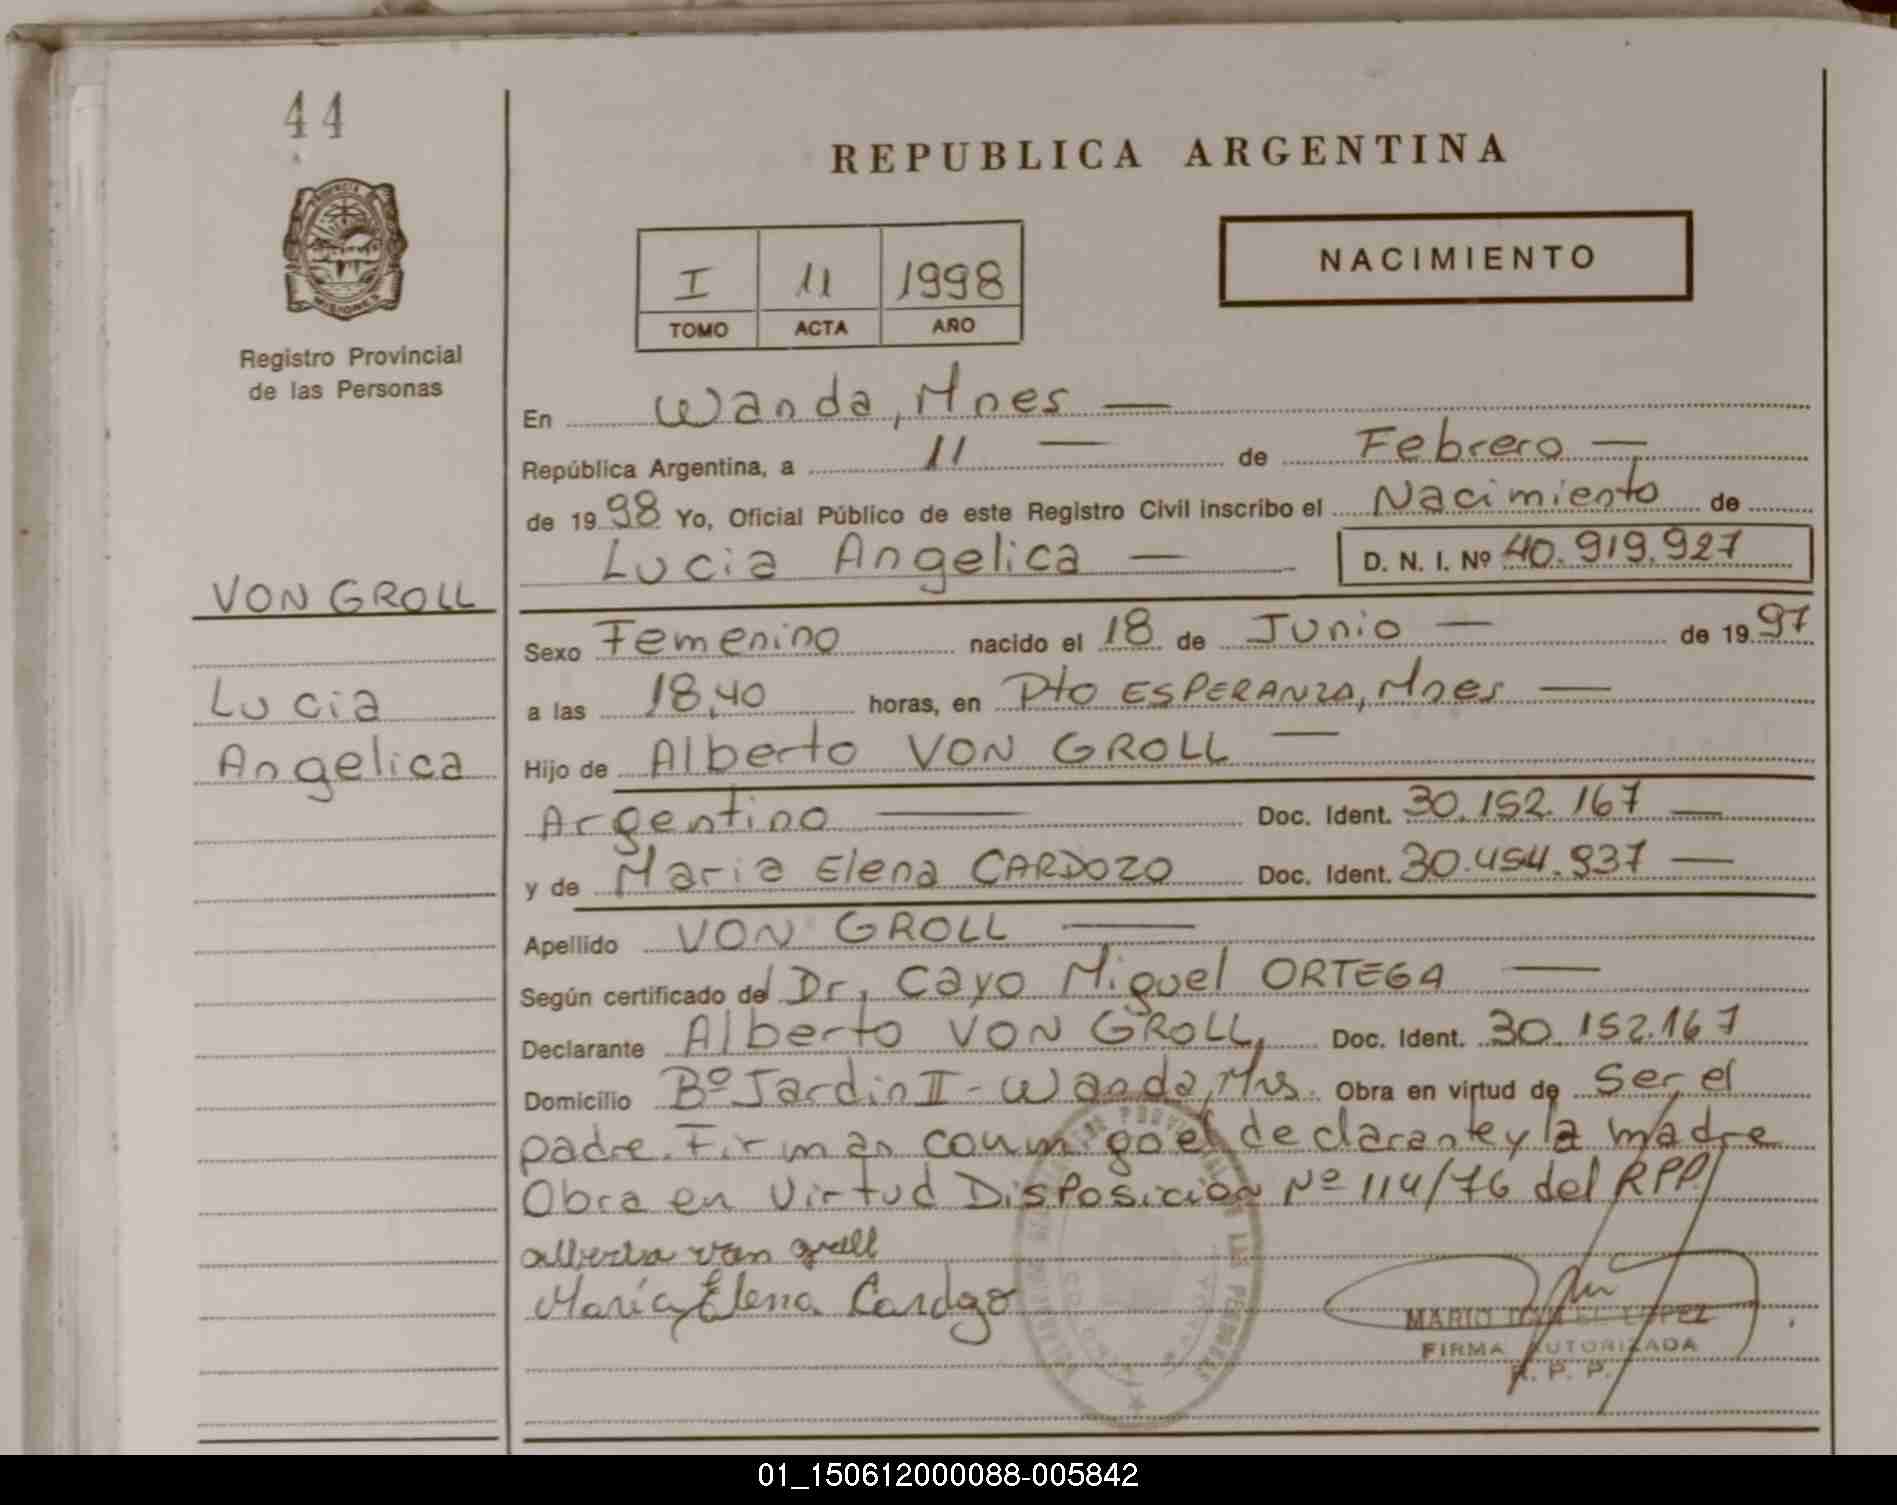 44
REPUBLICA ARGENTINA
NACIMIENTO
I 11 1998
TOMO ACTA AÑO
MISIONES
Registro Provincial
de las Personas
En Wanda, Mnes —
República Argentina, a 11 — de Febrero —
de 1998 Yo, Oficial Público de este Registro Civil inscribo el Nacimiento de
Lucia Angelica — D. N. I. Nº 40.919.927
VON GROLL
Sexo Femenino nacido el 18 de Junio — de 1997
Lucia
a las 18,40 horas, en Pto ESPERANZA, Mnes —
Angelica
Hijo de Alberto VON GROLL —
Argentino — Doc. Ident. 30.152.167 —
y de Maria Elena CARDOZO Doc. Ident. 30.454.937 —
Apellido VON GROLL —
Según certificado del Dr, Cayo Miguel ORTEGA —
Declarante Alberto VON GROLL, Doc. Ident. 30.152.167
Domicilio Bº Jardin II - Wanda, Mns. Obra en virtud de Ser el
padre. Firman conmigo el declarante y la madre
Obra en Virtud Disposicion Nº 114/76 del RPP.
alberto von groll
María Elena Cardozo
MARIO LOPEZ
FIRMA AUTORIZADA
R. P. P.
01_150612000088-005842